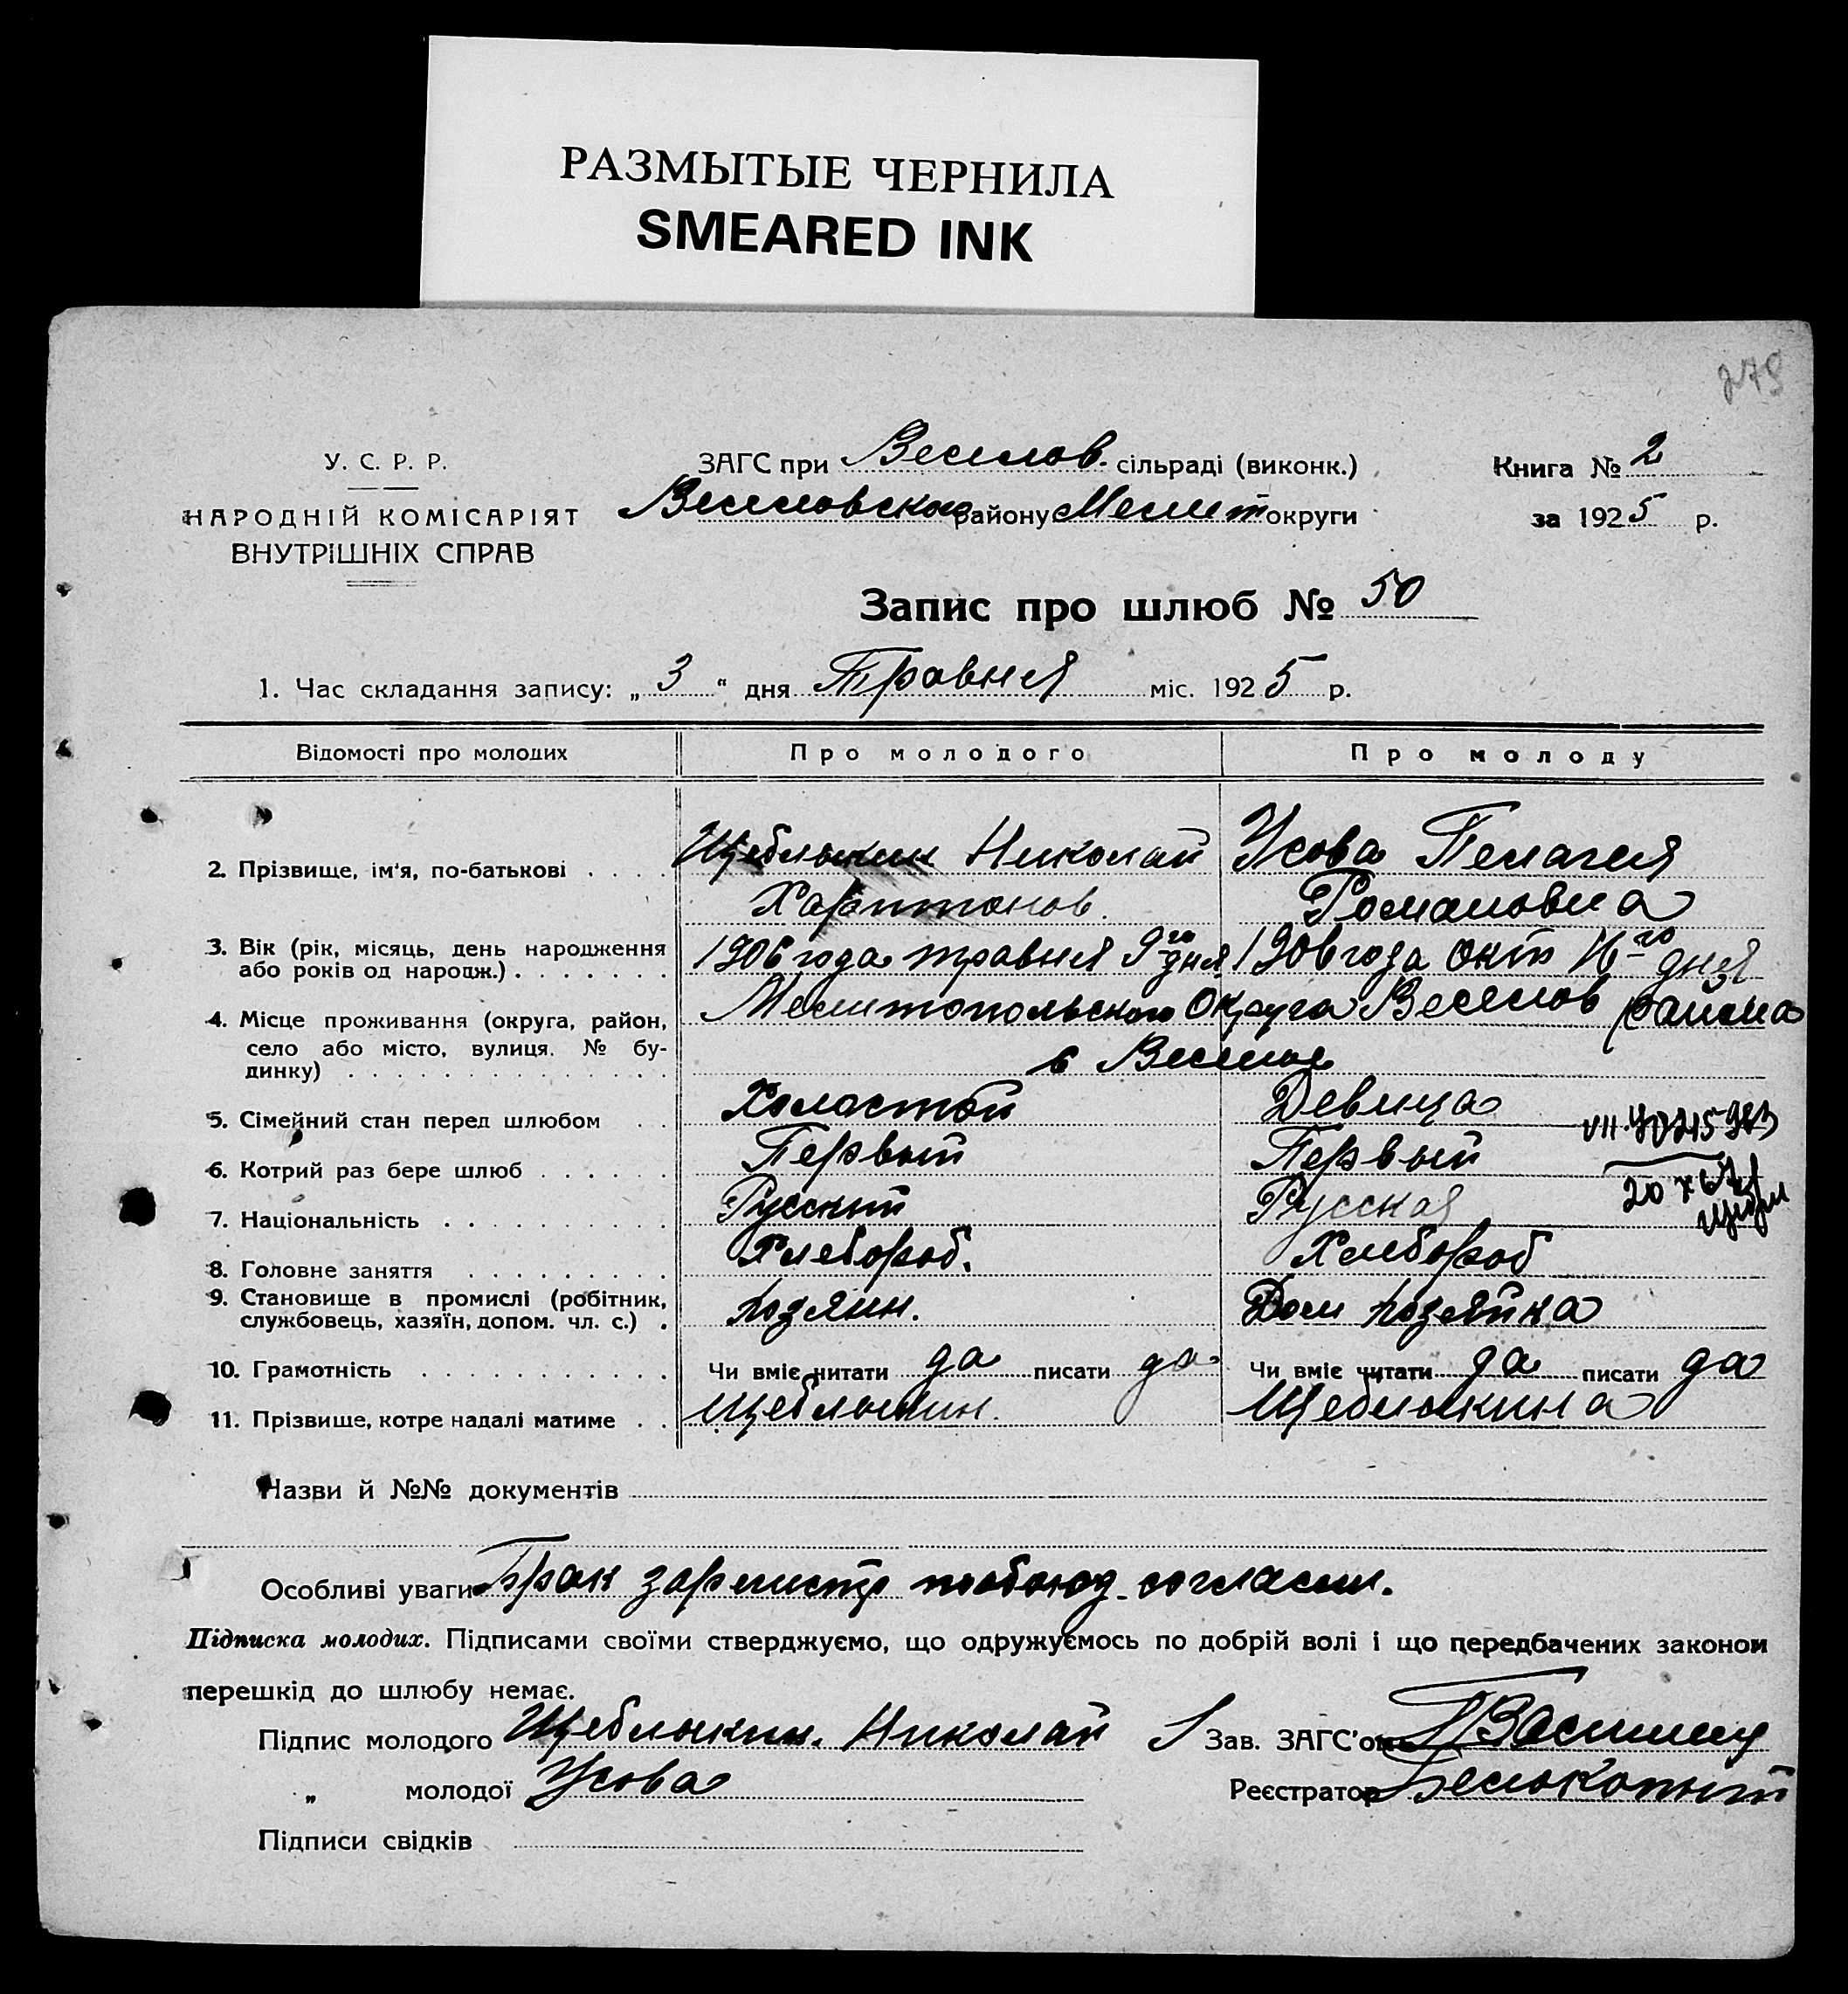 РАЗМЫТЫЕ ЧЕРНИЛА
SMEARED INK
279
У. С. Р. Р.
НАРОДНІЙ КОМІСАРІЯТ
ВНУТРІШНІХ СПРАВ
ЗАГС при Веселов. сільраді (виконк.)
Веселовского району Мелит округи
Книга № 2
за 1925 р.
Запис про шлюб № 50
1. Час складання запису: „ 3 " дня Травня міс. 1925 р.
Відомості про молодих
Про молодого
Про молоду
2. Прізвище, ім'я, по-батькові . . . .
Щеблыкин Николай
Харитонов.
Усова Пелагея
Романовна
3. Вік (рік, місяць, день народження
або років од народж.) . . . . . . .
1906 года травня 9го дня
1906 года Окт 16-го дня
4. Місце проживання (округа, район,
село або місто, вулиця. № бу-
динку) . . . . . . . . . . . . . .
Мелитопольского Округа Веселов района
с Веселое
5. Сімейний стан перед шлюбом . .
Холостой
Девица
6. Котрий раз бере шлюб . . . . . .
Первый
Первый
7. Національність . . . . . . . . . .
Русский
Русская
8. Головне заняття . . . . . . . . .
Хлебороб.
Хлебороб
9. Становище в промислі (робітник,
службовець, хазяїн, допом. чл. с.) .
хозяин.
Дом хозяйка
10. Грамотність . . . . . . . . . . .
Чи вміє читати да писати да
Чи вміє читати да писати да
11. Прізвище, котре надалі матиме . .
Щеблыкин.
Щеблыкина
Назви й №№ документів
Особливі уваги Брак зарегистр пообоюд. согласии.
Підписка молодих. Підписами своїми стверджуємо, що одружуємось по добрій волі і що передбачених законом
перешкід до шлюбу немає.
Підпис молодого Щеблыкин. Николай
Зав. ЗАГС'ом
„ молодої Усова
Реєстратор Белокопыт
Підписи свідків